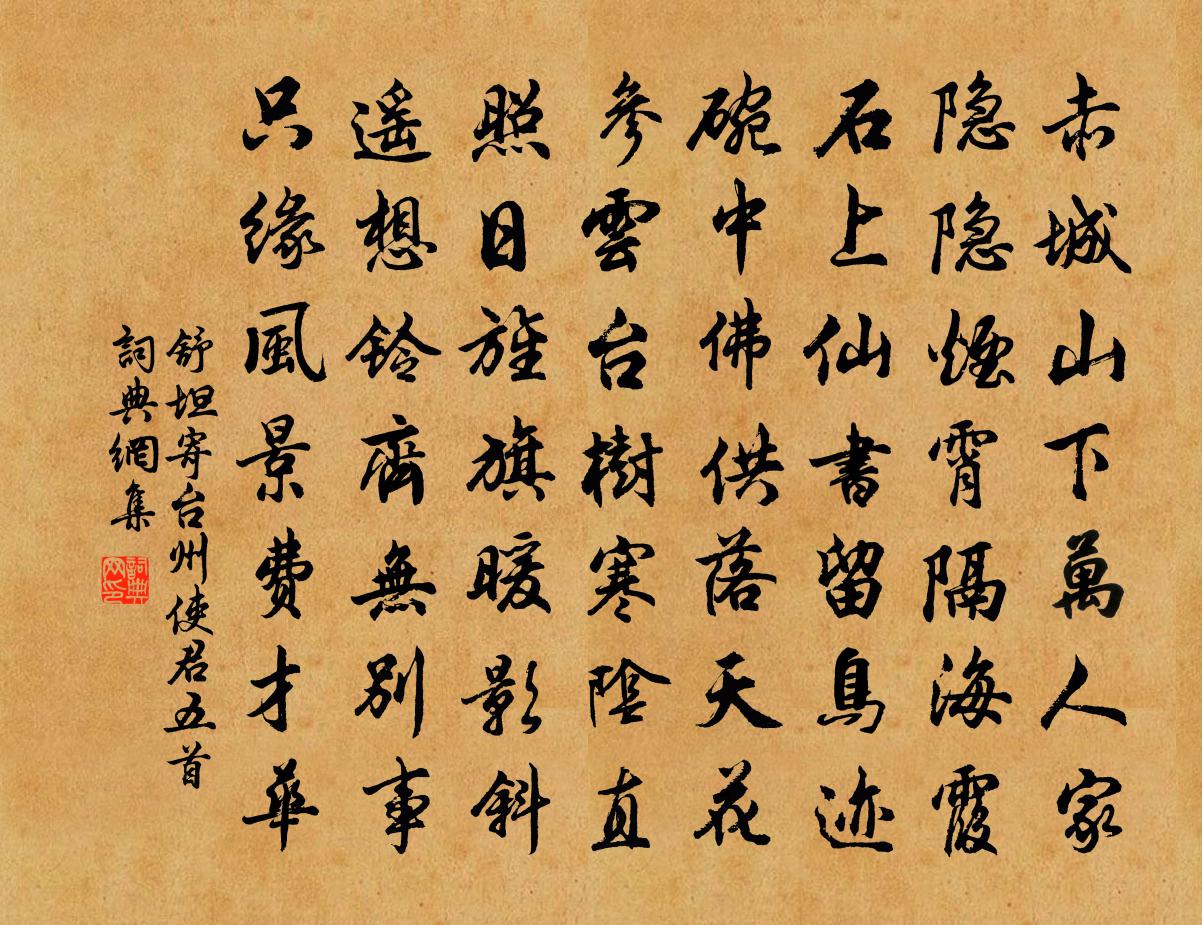 赤城山下萬人家
隐隐煙霄隔海霞
石上仙書留鳥迹
碗中佛供落天花
參雲台樹寒陰直
照日旌旗暖影斜
遥想鈴齊無別事
只緣風景費才華
舒坦寄台州使君五首
詞典網集
詞典网印